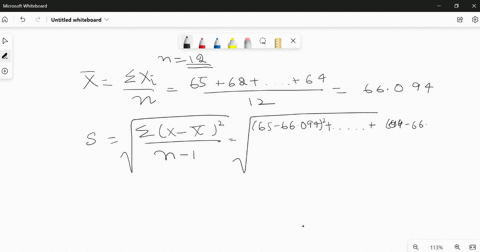 Microsoft Whiteboard
Untitled whiteboard
n = 12
X̄ = ΣXi / n = 65 + 62 + ..... + 64 / 12 = 66.094
S = √(Σ(X - X̄)² / n - 1) = √((65-66.094)² + ...... + (64-66.
113%